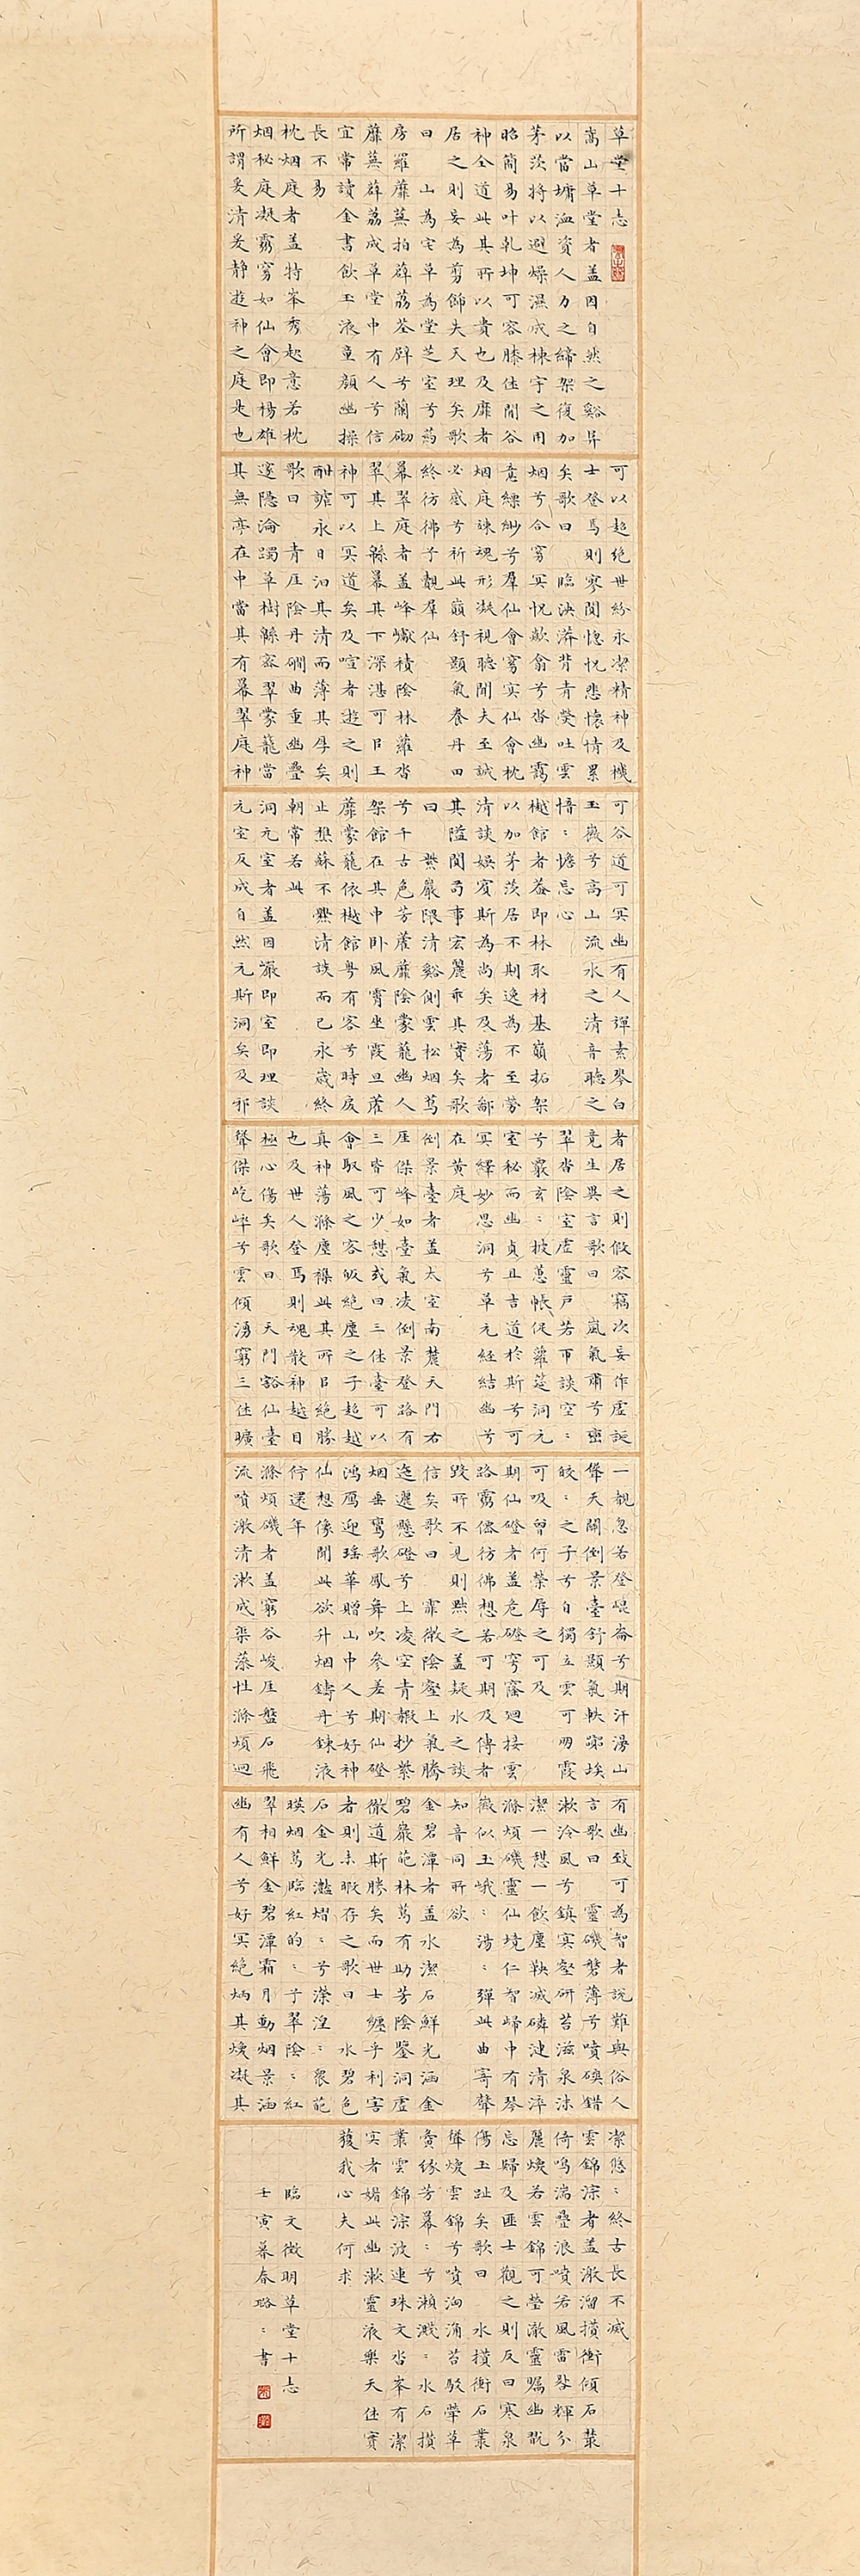 草堂十志
嵩山草堂者蓋因自然之谿阜
以當墉洫資人力之締架復加
茅茨將以避燥濕成棟宇之用
昭簡易叶乾坤可容膝休閒谷
神全道此其所以貴也及靡者
居之則妄為剪飾失天理矣歌
曰 山為宅草為堂芝室兮葯
房羅蘼蕪拍薜荔荃壁兮蘭砌
蘼蕪薜荔成草堂中有人兮信
宜常讀金書飲玉液童顏幽操
長不易
枕烟庭者蓋特峯秀起意若枕
烟秘庭凝霧窅如仙會即楊雄
所謂爰清爰静遊神之庭是也
可以超絕世紛永潔精神及機
士登焉則寥闃惚怳悲懷情累
矣歌曰 臨泱漭背青熒吐雲
烟兮合窅冥怳歘翕兮沓幽靄
意縹緲兮羣仙會窅冥仙會枕
烟庭竦魂形凝視聽聞夫至誠
必感兮祈此巔舒顥氣養丹田
終彷彿兮覯羣仙
冪翠庭者蓋峰巘積陰林蘿沓
翠其上緜冪其下深湛可㠯王
神可以冥道矣及喧者遊之則
酣謔永日汩其清而薄其厚矣
歌曰 青厓陰丹磵曲重幽疊
邃隱淪躅草樹緜冪翠蒙蘢當
其無亭在中當其有冪翠庭神
可谷道可冥幽有人彈素琴白
玉徽兮高山流水之清音聽之
愔:憺忘心
樾館者蓋即林取材基巔拓架
以加茅茨居不期逸為不至勞
清談娛賓斯為尚矣及蕩者鄙
其隘閴苟事宏麗乖其實矣歌
曰 紫巖隈清谿側雲松烟蔦
兮千古色芳藿蘼陰蒙蘢幽人
架館在其中卧風霄坐霞旦藿
蘼蒙蘢依樾館粤有客兮時戾
止樵蘇不爨清談而已永歲終
朝常若此
洞元室者蓋因巖即室即理談
元室反成自然元斯洞矣及邪
者居之則假容竊次妄作虛誕
竞生異言歌曰 嵐氣肅兮巖
翠沓陰室虛靈戶若帀談空:
兮覈玄:披蕙帳促蘿筵洞元
室秘而幽貞且吉道於斯兮可
冥繹妙思洞兮草元經結幽兮
在黃庭
倒景臺者蓋太室南麓天門右
厓傑峰如臺氣凌倒景登路有
三皆可少憩或曰三休臺可以
會馭風之客皈絕塵之子超越
真神蕩滌塵襟此其所㠯絕勝
也及世人登焉則魂散神越目
極心傷矣歌曰 天門豁仙臺
聳傑屹崪兮雲傾湧窮三休曠
一觀忽若登崐崙兮期汗漫山
聳天關倒景臺舒顥氣軼嚻埃
皎:之子兮自獨立雲可朋霞
可吸曾何榮辱之可及
期仙磴者蓋危磴穹窿迴接雲
路靄儗彷彿想若可期及傳者
跤所不見則黙之蓋疑冰之談
信矣歌曰 霏微陰壑上氣騰
迤邐懸磴兮上凌空青霞抄紫
烟垂鸞歌鳳舞吹參差期仙磴
鴻鴈迎瑤華贈山中人兮好神
仙想像聞此欲升烟鑄丹鍊液
佇還年
滌煩磯者蓋窮谷峻厓盤石飛
流噴激清漱成渠蕩性滌煩迴
有幽致可為智者說難與俗人
言歌曰 靈磯磐薄兮噴礇錯
漱泠風兮鎮冥壑研苔滋泉沫
潔一憩一飲塵鞅滅磷漣清淬
滌煩磯靈仙境仁智歸中有琴
徽似玉峨:湯:彈此曲寄聲
知音同所欲
金碧潭者蓋水潔石鮮光涵金
碧巖葩林蔦有助芳陰鑒洞虛
徹道斯勝矣而世士纏乎利害
者則未暇存之歌曰 水碧色
石金光灩熠:兮濚湟:葩
暎烟蔦臨紅的:兮翠陰:紅
翠相鮮金碧潭霜月動烟景涵
幽有人兮好冥絕炳其煥凝其
潔悠:終古長不滅
雲錦淙者蓋激溜攢衝傾石叢
倚鳴湍疊浪噴若風雷畧輝分
麗煥若雲錦可瑩澈靈矚幽翫
忘歸及匪士觀之則反曰寒泉
傷玉趾矣歌曰 水攢衝石叢
聳煥雲錦兮噴洶涌苔駁犖草
夤緣芳冪:兮瀨濺:水石攢
叢雲錦淙波連珠文沓峯有潔
实者媚此幽漱靈液樂天休實
獲我心夫何求
臨文徵明草堂十志
壬寅暮春璐:書